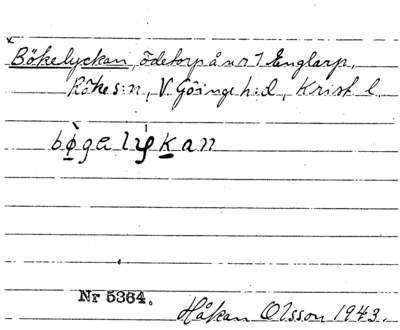 x
Bökelyckan, ödetorp å nr 1 Englarp,
Röke s:n, V. Göinge h:d, Krist l.
bø̀gəlýkan
Nr 5364.
Håkan Olsson 1943.